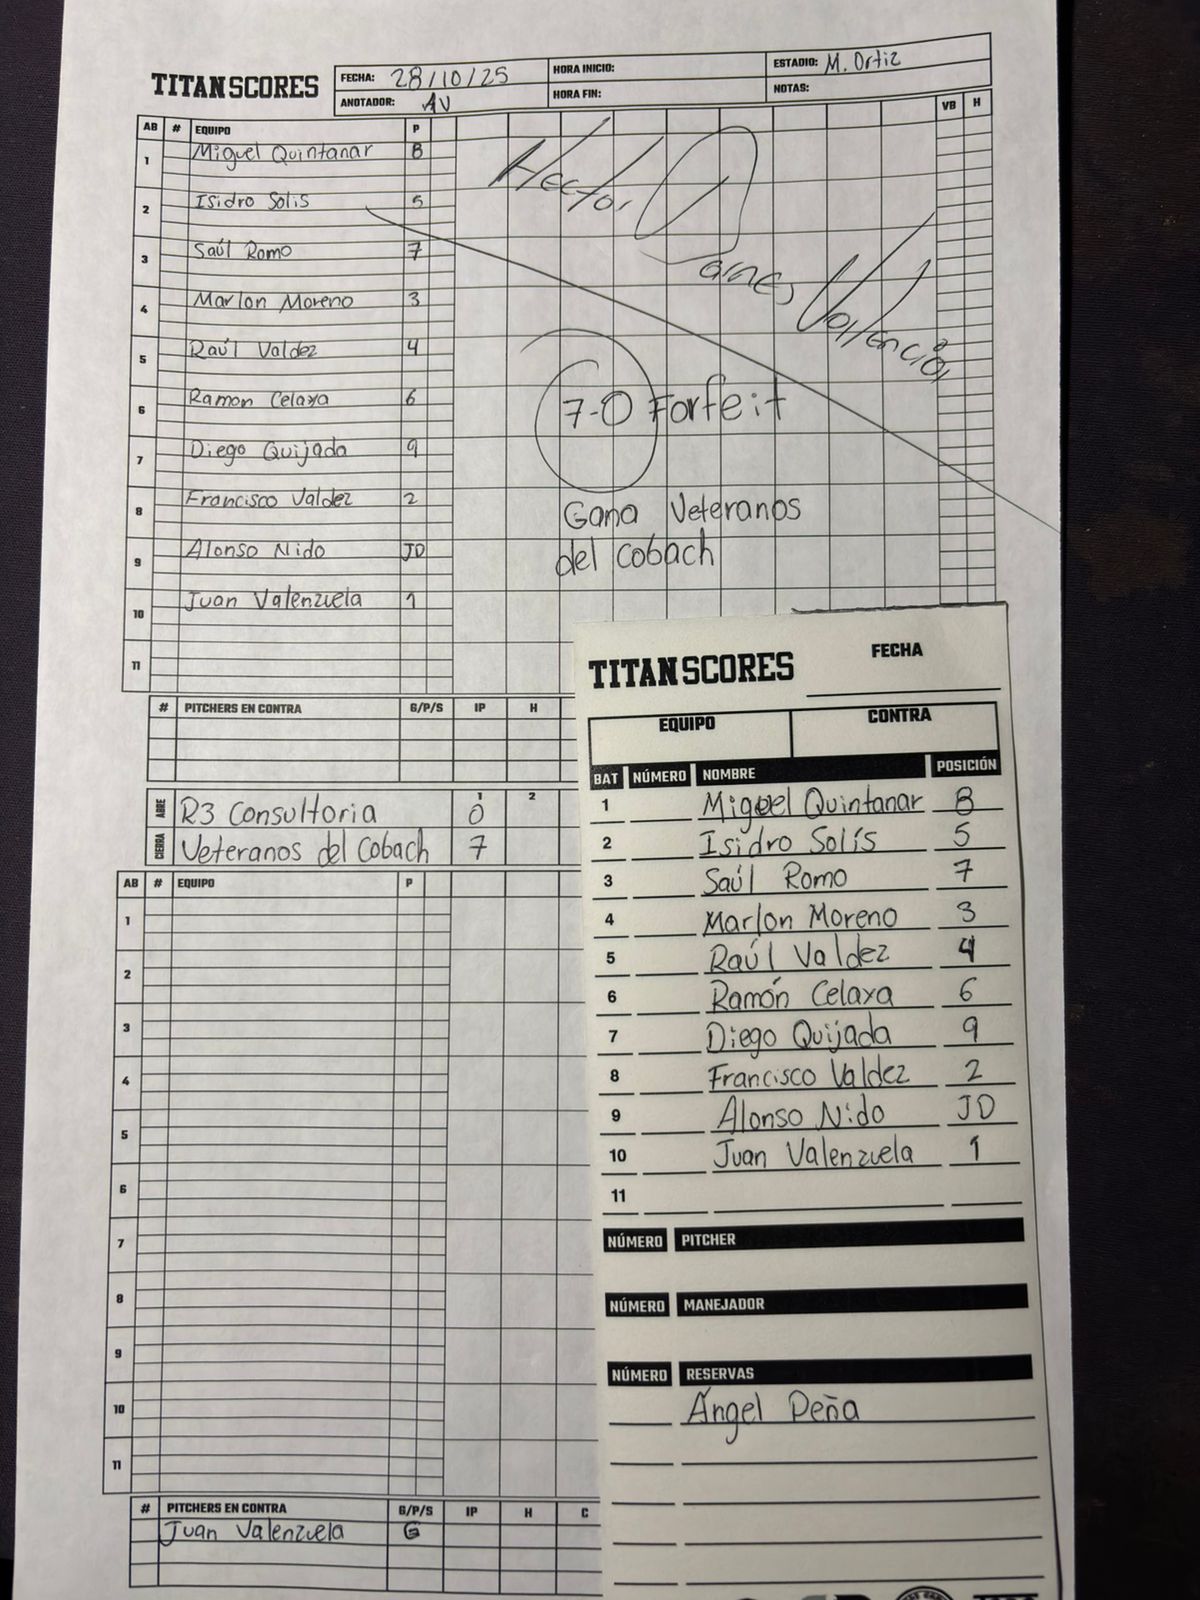 TITAN SCORES
FECHA: 28/10/25
HORA INICIO:
ESTADIO: M. Ortiz
ANOTADOR: AV
HORA FIN:
NOTAS:
AB # EQUIPO P VB H
1 Miguel Quintanar 8
2 Isidro Solis 5
3 Saúl Romo 7
4 Marlon Moreno 3
5 Raúl Valdez 4
6 Ramon Celaya 6
7 Diego Quijada 9
8 Francisco Valdez 2
9 Alonso Nido JD
10 Juan Valenzuela 1
11
Hector
7-0 Forfeit
Gana Veteranos
del Cobach
# PITCHERS EN CONTRA G/P/S IP H
1 2
ABRE R3 Consultoria 0
CIERRA Veteranos del Cobach 7
AB # EQUIPO P
1
2
3
4
5
6
7
8
9
10
11
# PITCHERS EN CONTRA G/P/S IP H C
Juan Valenzuela G
TITAN SCORES
FECHA
EQUIPO CONTRA
BAT NÚMERO NOMBRE POSICIÓN
1 Miguel Quintanar 8
2 Isidro Solís 5
3 Saúl Romo 7
4 Marlon Moreno 3
5 Raúl Valdez 4
6 Ramón Celaya 6
7 Diego Quijada 9
8 Francisco Valdez 2
9 Alonso Nido JD
10 Juan Valenzuela 1
11
NÚMERO PITCHER
NÚMERO MANEJADOR
NÚMERO RESERVAS
Ángel Peña